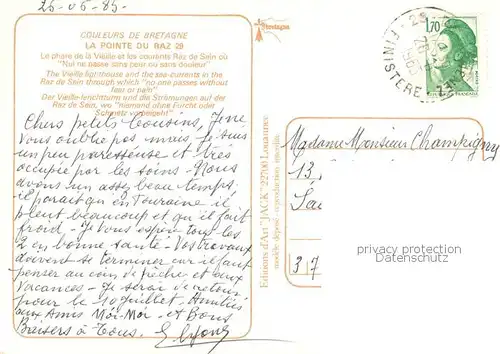 26-06-85.
COULEURS DE BRETAGNE
LA POINTE DU RAZ 29
Le phare de la Vieille et les courants Raz de Sein où
"Nul ne passe sans peur ou sans douleur"
The Vieille lighthouse and the sea-currents in the
Raz de Sein through which "no one passes without
fear or pain"
Der Vieille-leuchtturm und die Strömungen auf der
Raz de Sein, wo "niemand ohne Furcht oder
Schmerz vorbeigeht"
Bretagne
Chers petits Cousins, Je ne
vous oublie pas mais Je suis
un peu paresseuse et très
occupée par les soins - Nous
avons un assez beau temps,
il parait qu'en Touraine il
pleut beaucoup et qu'il fait
froid - Je vous espère tous les
2 en bonne santé - Vos travaux
doivent se terminer car il faut
penser au coin de pêche et aux
vacances - Je serai de retour
pour le 10 Juillet - Amitiés
aux Amis Moi-Moi - et Bons
Baisers à Tous.
Editions d'Art "JACK" 22700 Louannec
modèle déposé reproduction interdite
1,70
29
FINISTERE
Madame Monsieur Champigny
13,
37
privacy protection
Datenschutz